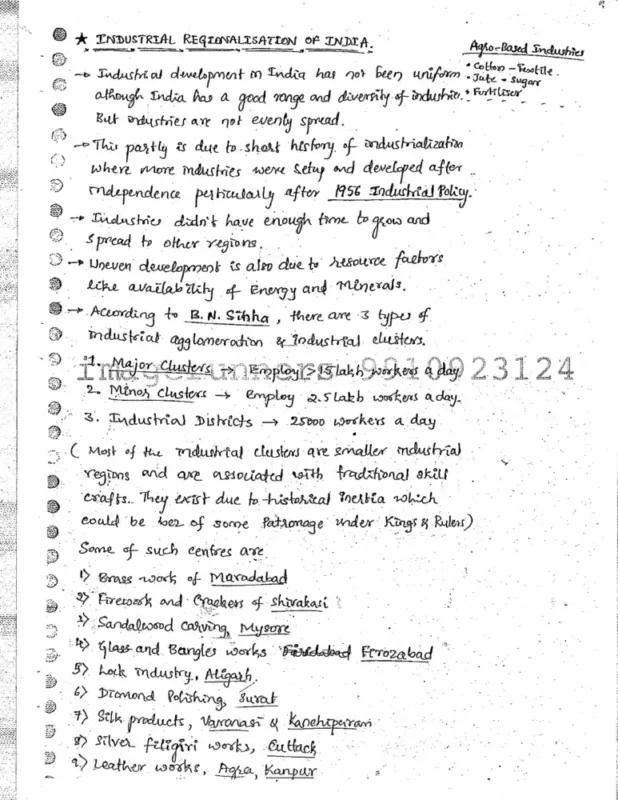 ★ INDUSTRIAL REGIONALISATION OF INDIA.
Agro-Based Industries
• Cotton - Textile
• Jute • Sugar
• Fertiliser
→ Industrial development in India has not been uniform
although India has a good range and diversity of industries.
But industries are not evenly spread.
→ This partly is due to short history of industrialization
where more industries were setup and developed after
independence perticularly after 1956 Industrial Policy.
→ Industries didn't have enough time to grow and
spread to other regions.
→ Uneven development is also due to resource factors
like availability of Energy and Minerals.
→ According to B.N. Sinha, there are 3 types of
industrial agglomeration & Industrial clusters.
1. Major Clusters → Employ >15 lakh workers a day
imagerunners 9910923124
2. Minor Clusters → employ 2.5 lakh workers a day.
3. Industrial Districts → 25000 workers a day
( Most of the industrial clusters are smaller industrial
regions and are associated with traditional skill
crafts. They exist due to historical inertia which
could be bez of some Patronage under Kings & Rulers)
Some of such centres are
1) Brass work of Maradabad
2) Firework and Crackers of Shivakasi
3) Sandalwood Carving, Mysore
4) Glass and Bangles works Faridabad Ferozabad
5) Lock industry, Aligarh.
6) Diamond Polishing, Surat
7) Silk products, Varanasi & Kanchipuram
8) Silver filigiri works, Cuttack
9) Leather works, Agra, Kanpur